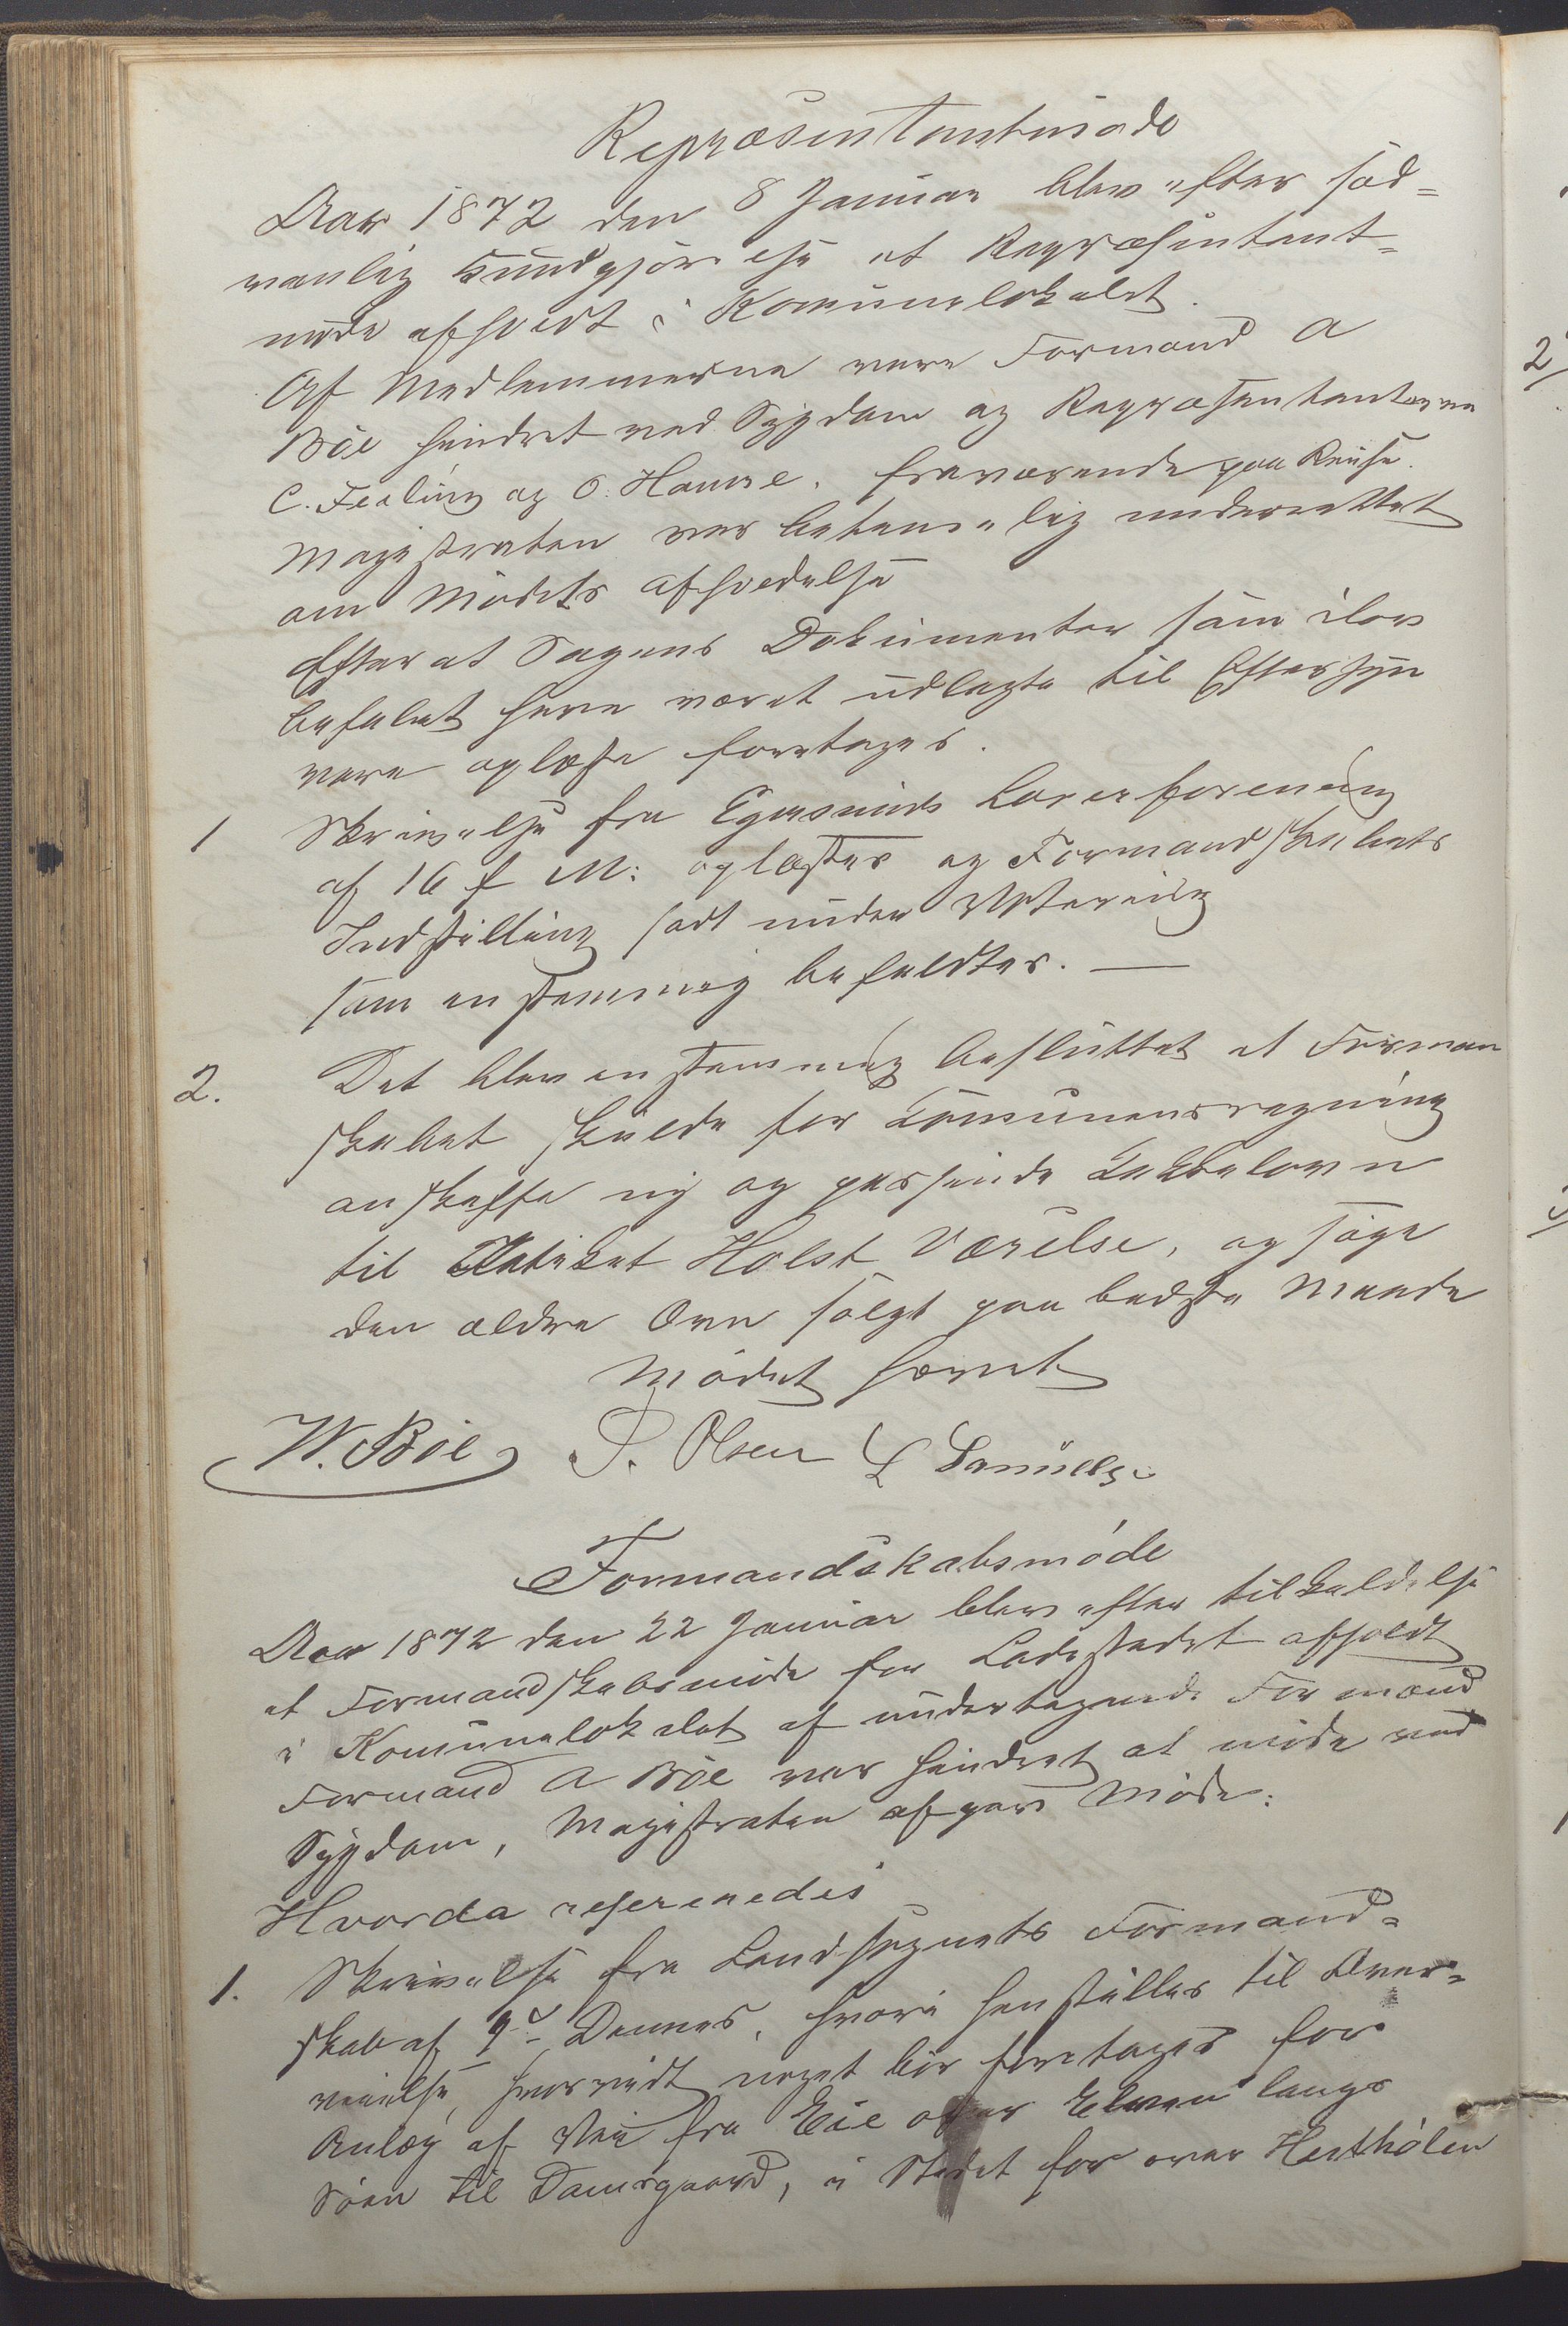 Repræsentantmøde
Aar 1872 den 8 Januar blev efter sæd=
vanlig Kundgjørelse et Repræsentant=
møde afholdt i Komunelokalet.
Af Medlemmerne vare Formand A
Böe hindret ved Sygdom og Repræsentanterne
C. Feeling og O. Hamre, fraværende paa Reise.
Magistraten var betimelig underrettet
om Mödets afholdelse
Efterat Sagens Dokumenter som i lov
befalet have været udlagte til Eftersyn
vare oplæste foretoges.
1 Skrivelse fra Egersunds Lærerforening
af 16 f M: oplæstes og Formandskabets
Indstilling sadt under Votering
som enstemmig bifaldtes. —
2. Det blev enstemmig besluttet at Forman
skabet skulde for Komunens regning
anskaffe ny og passende Kakkelovn
til Katiket Holst Værelse, og søge
den ældre Ovn solgt paa bedste Maade
Mödet hævet
W. Böe S. Olsen L Samuels.
Formandskabsmöde
Aar 1872 den 22 Januar blev efter tilkaldelse
et Formandskabsmöde for Ladestedet afholdt
i Komunelokalet af undertegnede Formænd
Formand A Böe var hindret at møde ved
Sygdom, Magistraten afgav Möde.
Hvorda refereredes
1. Skrivelse fra Landsognets Formand=
skab af 9de Dennes, hvori henstilles til Over=
veielse, hvorvidt noget bör foretages for
Anlæg af Vei fra Eie over Elven langs
Söen til Damsgaard, i Stedet for over Hesthölen